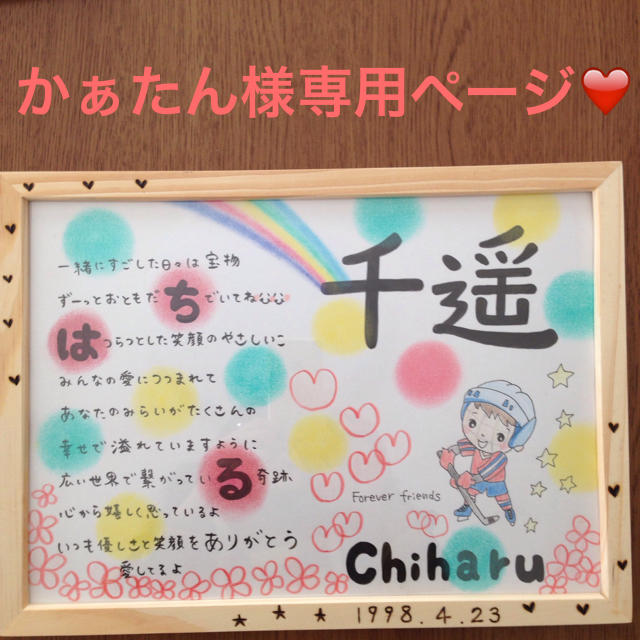 かぁたん様専用ページ❤️
千遥
一緒にすごした日々は宝物
ずーっとおともだちでいてね
はつらつとした笑顔のやさしいこ
みんなの愛につつまれて
あなたのみらいがたくさんの
幸せで溢れていますように
広い世界で繋がっている奇跡
心から嬉しく思っているよ
いつも優しさと笑顔をありがとう
愛してるよ
Forever friends
Chiharu
1998.4.23